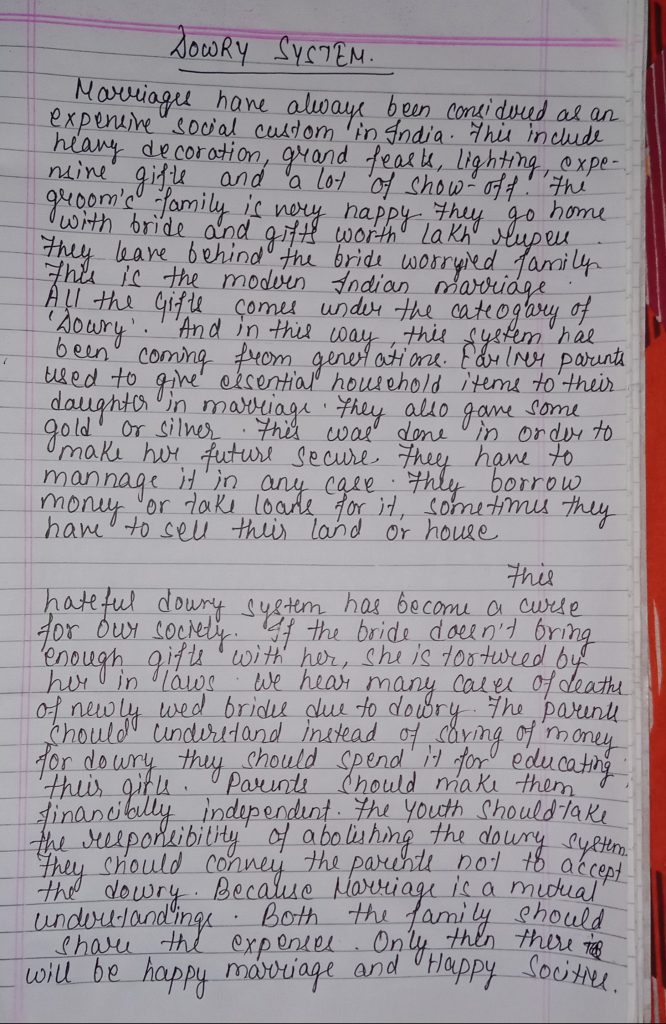 DOWRY SYSTEM.
Marriages have always been considured as an
expensive social custom in India. This include
heavy decoration, grand feasts, lighting, expe-
nsive gifts and a lot of show-off. The
groom's family is very happy they go home
with bride and gifts worth lakh rupees.
They leave behind the bride worryied family
This is the modern Indian marriage.
All the Gifts comes under the cateogary of
'Dowry'. And in this way, this system has
been coming from generations. Earlner parents
used to give essential household items to their
daughter in marriage. They also gave some
gold or silver. This was done in order to
make her future secure. They have to
mannage it in any case. They borrow
money or take loans for it, sometimes they
have to sell their land or house
This
hateful dowry system has become a curse
for our society. If the bride doesn't bring
enough gifts with her, she is tortured by
her in laws. We hear many cases of deaths
of newly wed brides due to dowry. The parents
should understand instead of saving of money
for dowry they should spend it for educating
their girls. Parents should make them
financially independent. The youth should take
the responsibility of abolishing the dowry system.
They should convey the parents not to accept
the dowry. Because Marriage is a mutual
understandings. Both the family should
share the expenses. Only then there
will be happy marriage and Happy Socities.